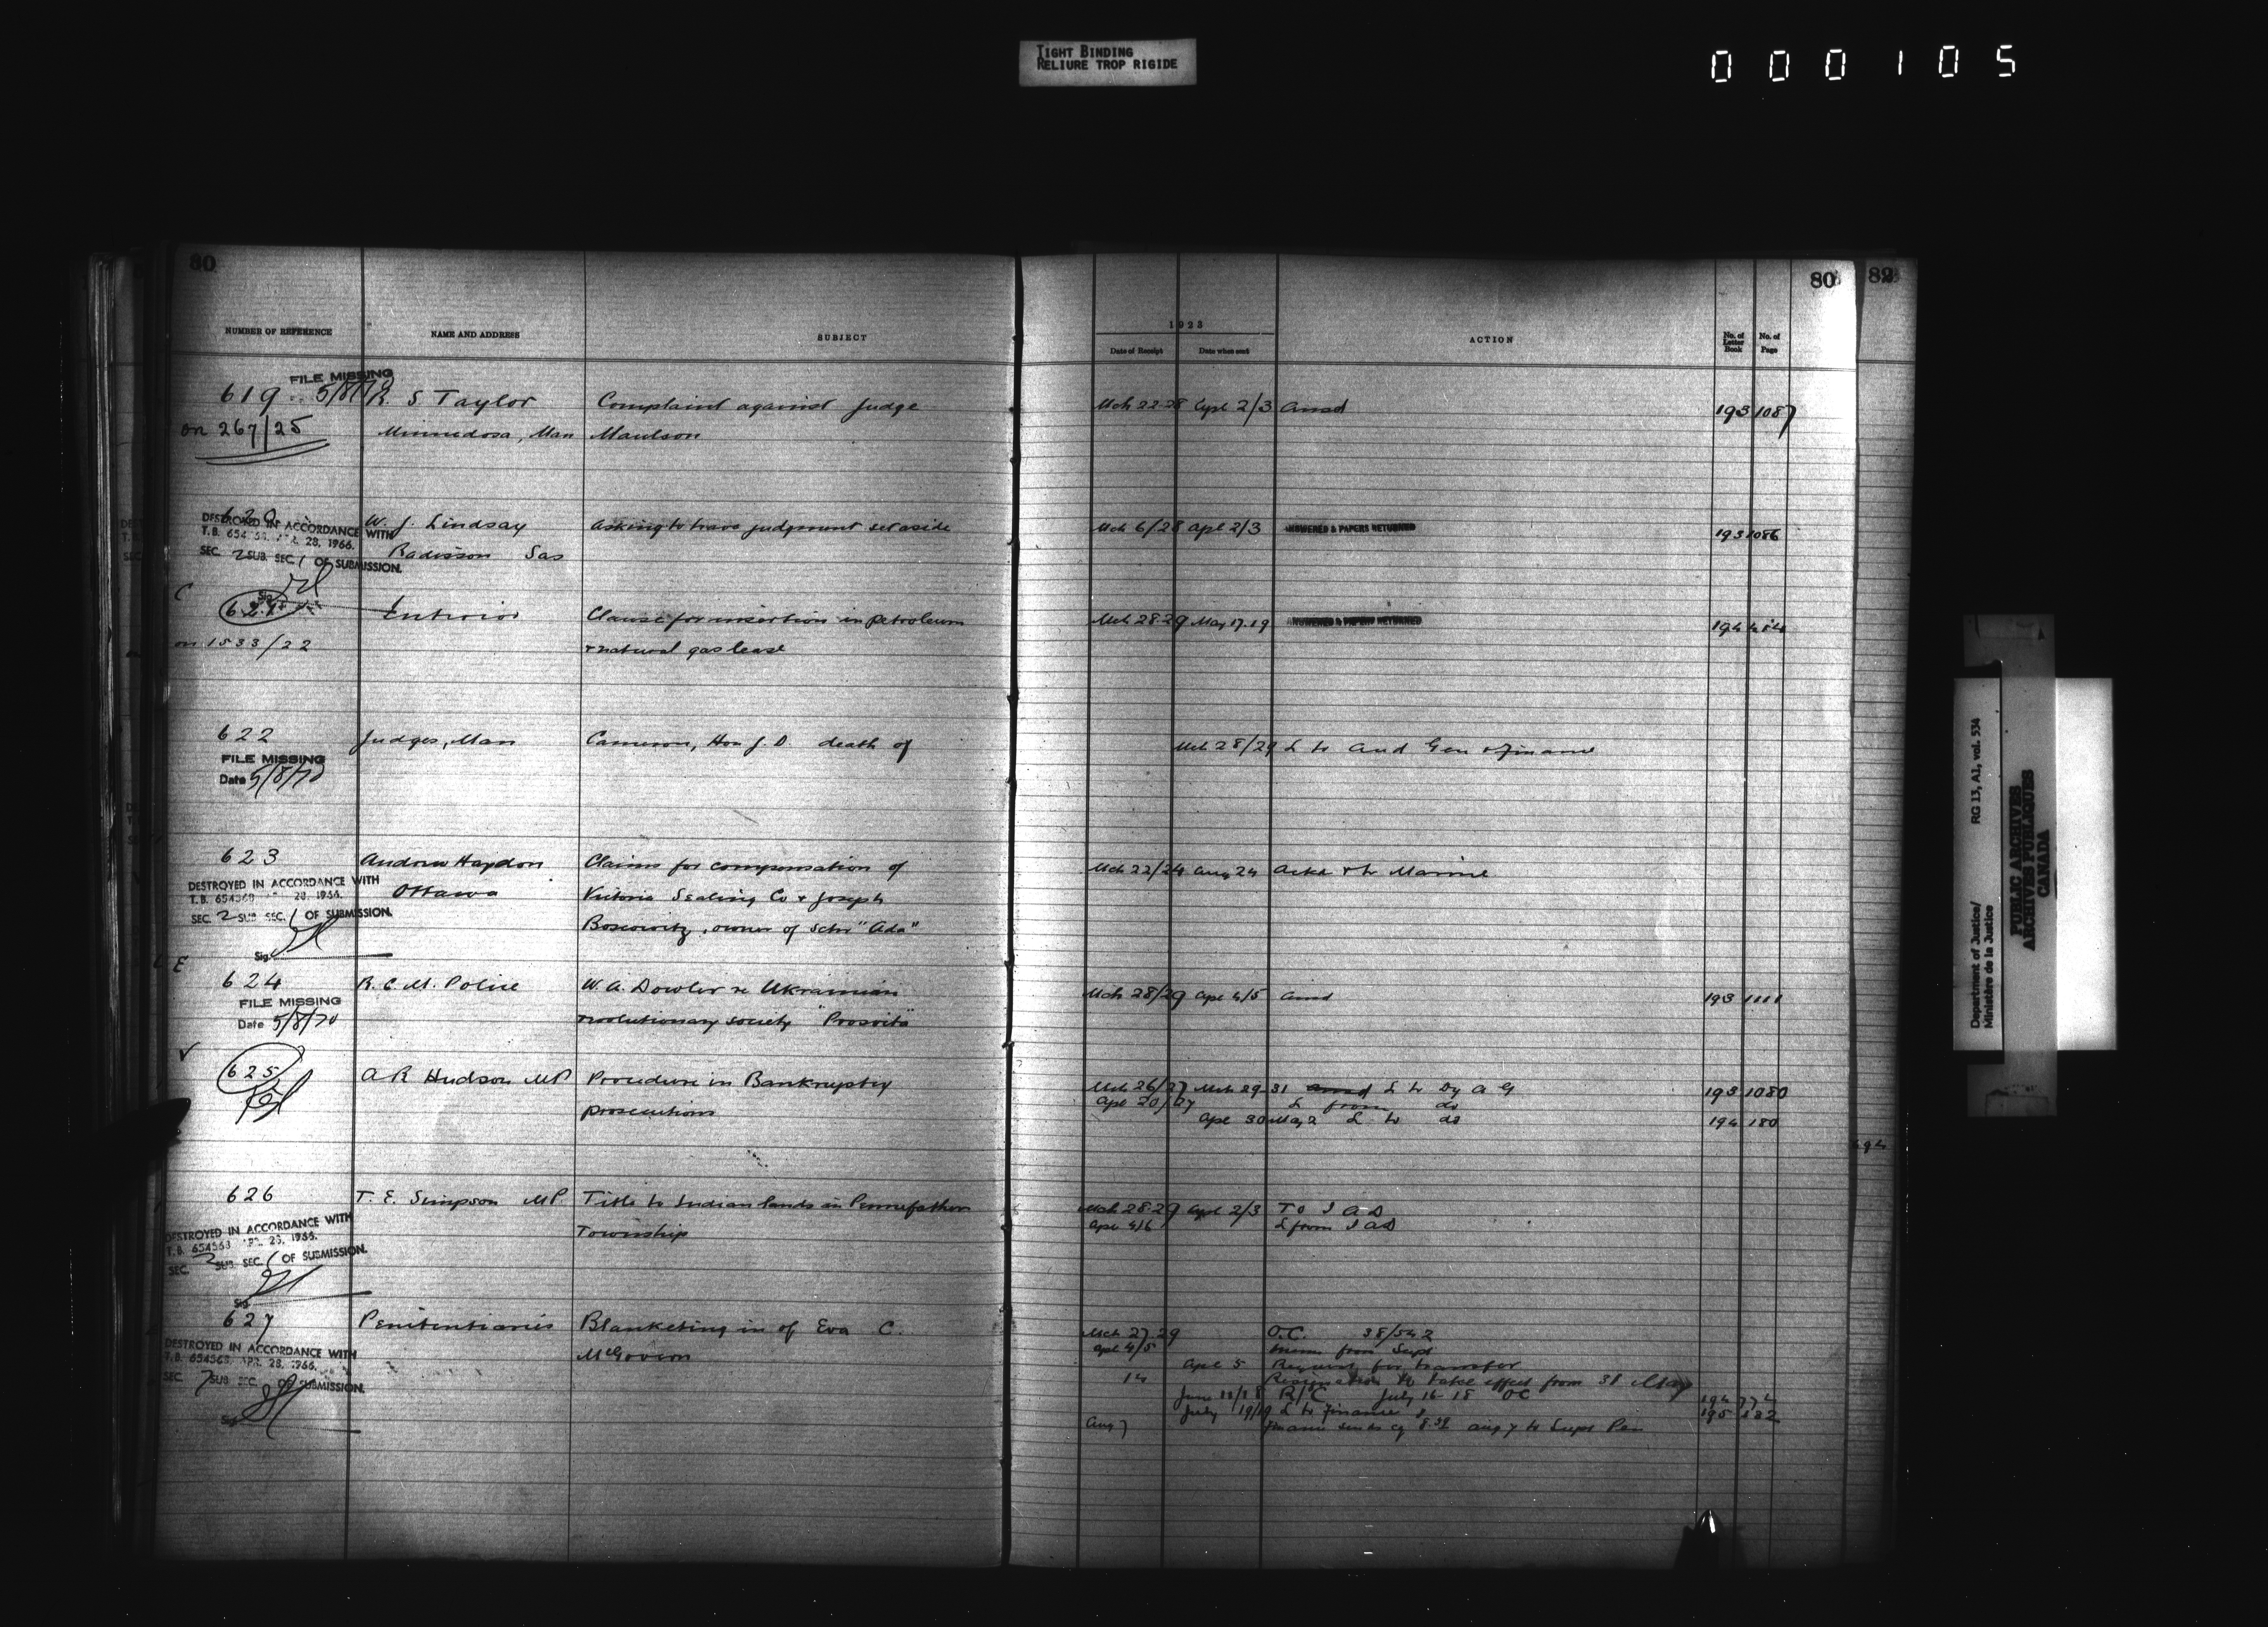 TIGHT BINDING
RELIURE TROP RIGIDE
000105
80
80
82
NUMBER OF REFERENCE NAME AND ADDRESS SUBJECT
1923
Date of Receipt Date when sent ACTION No. of Letter Book No. of Page
FILE MISSING
619 5/8/70 R. S Taylor Complaint against Judge Mch 22 28 Apl 2/3 ansd 193 1087
on 267/25 Minnedosa, Man Maulson
620 W. J. Lindsay asking to have judgment set aside Mch 6/28 apl 2/3 ANSWERED & PAPERS RETURNED 193 1086
DESTROYED IN ACCORDANCE WITH
T.B. 654563 APR. 28, 1966.
Radisson Sas
SEC. 2 SUB. SEC. 1 OF SUBMISSION.
Sig.
C
621 Interior Clause for insertion in petroleum Mch 28 29 May 17.19 ANSWERED & PAPERS RETURNED 194
on 1533/22 & natural gas lease
622 Judges, Man Cameron, Hon J. D. death of Mch 28/29 L to Aud Gen & Finance
FILE MISSING
Date 5/8/70
623 Andrew Haydon Claims for compensation of Mch 22/24 Aug 24 Ackd & to Marine
DESTROYED IN ACCORDANCE WITH
T.B. 654563 APR. 28, 1966.
Ottawa Victoria Sealing Co & Joseph
SEC. 2 SUB. SEC. 1 OF SUBMISSION.
Boscowitz, owner of Schr "Ada"
Sig.
E
624 R. C. M. Police W. A. Dowler re Ukrainian Mch 28/29 apl 4/5 ansd 193 1111
FILE MISSING
Date 5/8/70 revolutionary society "Prosvita"
625 A R Hudson MP Procedure in Bankruptcy Mch 26/27 Mch 29-31 ansd L to Dy A G 193 1080
prosecutions apl 20/27 L from do
apl 30 May 2 L to do 194 180
626 T. E. Simpson MP. Title to Indian lands in Pennefather Mch 28-29 Apl 2/3 To I A D
Township apl 4/6 L from I A D
DESTROYED IN ACCORDANCE WITH
T.B. 654563 APR. 28, 1966.
SEC. 2 SUB. SEC. 1 OF SUBMISSION.
Sig.
627 Penitentiaries Blanketing in of Eva C. Mch 27.29 O.C. 38/542
McGovern apl 4/5 Memo from Supt
DESTROYED IN ACCORDANCE WITH
T.B. 654563 APR. 28, 1966.
SEC. 7 SUB. SEC. OF SUBMISSION.
Sig.
apl 5 Request for transfer
14 Resignation to take effect from 31 May
June R/C July 16 18 OC 194 774
July 19/19 L to Finance 195 582
Aug 7 Finance sends cq 8.39 aug 7 to Supt Pen
Department of Justice/
Ministère de la Justice
RG 13, A1, vol. 534
PUBLIC ARCHIVES
ARCHIVES PUBLIQUES
CANADA